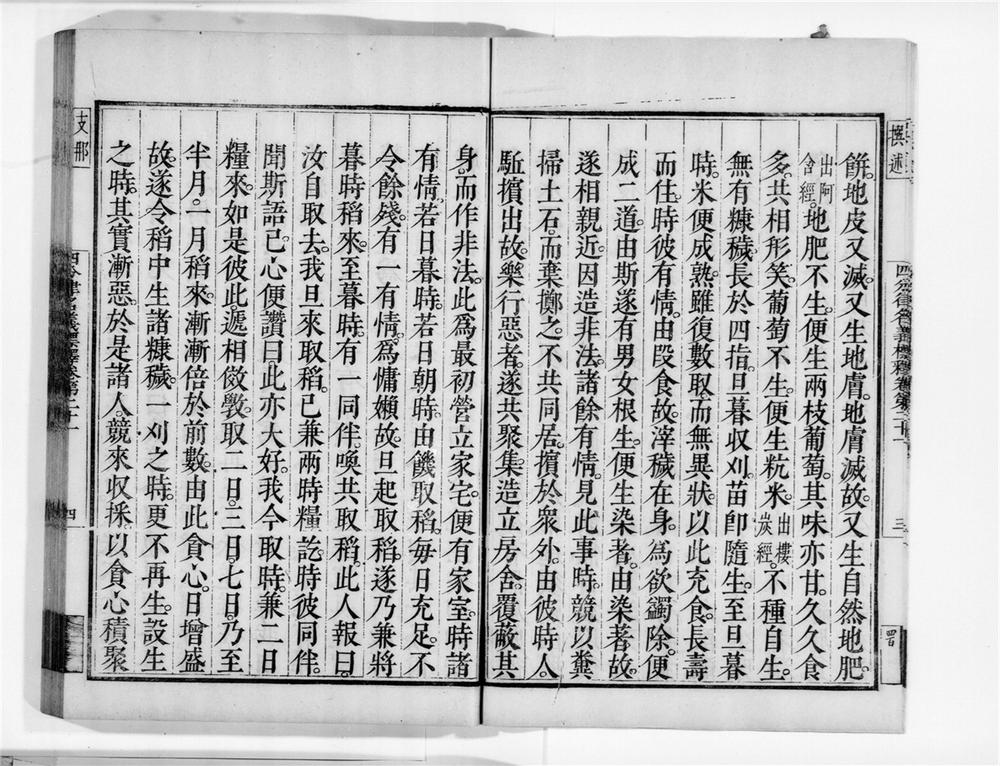 撰述
四分律名義標釋卷第二十一
三
餅。地皮又滅。又生地膚。地膚滅故。又生自然地肥。
出阿含經。地肥不生。便生兩枝葡萄。其味亦甘。久久食
多。共相形笑。葡萄不生。便生秔米。出樓炭經。不種自生。
無有糠穢。長於四指。旦暮収刈。苗即隨生。至旦暮
時。米便成熟。雖復數取。而無異狀。以此充食。長壽
而住。時彼有情。由段食故。滓穢在身。為欲蠲除。便
成二道。由斯遂有男女根生。便生染著。由染著故。
遂相親近。因造非法。諸餘有情。見此事時。競以糞
掃土石。而棄擲之。不共同居。擯於衆外。由彼時人。
駈擯出故。樂行惡者。遂共聚集。造立房舍。覆蔽其
身。而作非法。此爲最初。營立家宅。便有家室。時諸
有情。若日暮時。若日朝時。由饑取稻。每日充足。不
令餘殘。有一有情。爲慵嬾故。旦起取稻。遂乃兼將
暮時稻來。至暮時。有一同伴。喚共取稻。此人報曰。
汝自取去。我旦來取稻。已兼兩時糧訖。時彼同伴。
聞斯語已。心便讚曰。此亦大好。我今取時。兼二日
糧來。如是彼此。遞相倣斆。取二日。三日。七日。乃至
半月。一月稻來。漸漸倍於前數。由此貪心。日增盛
故。遂令稻中。生諸糠穢。一刈之時。更不再生。設生
之時。其實漸惡。於是諸人。競來収採。以貪心積聚
支那
四分律名義標釋卷第二十一
四